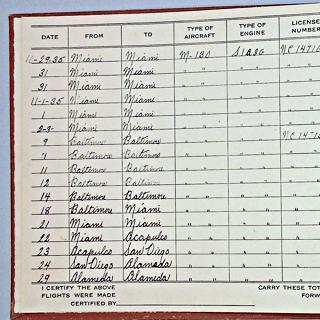 DATE FROM TO TYPE OF AIRCRAFT TYPE OF ENGINE LICENSE NUMBER
10-29-35 Miami Miami M-130 S1B3G NC 14716
31 Miami Miami " " " "
31 Miami Miami " " " "
11-1-35 Miami Miami " " " "
1 Miami Miami " " " "
2-3- Miami Miami " " " "
9 Baltimore Baltimore " " " " NC 14716
" Baltimore Baltimore " " " "
11 Baltimore Baltimore " " " "
12 Baltimore Baltimore " " " "
14 Baltimore Baltimore " " " "
18 Baltimore Miami " " " "
21 Miami Miami " " " "
22 Miami Acapulco " " " "
23 Acapulco San Diego " " " "
24 San Diego Alameda " " " "
29 Alameda Alameda " " " "
I CERTIFY THE ABOVE
FLIGHTS WERE MADE
CERTIFIED BY
CARRY THESE TOT
FORW